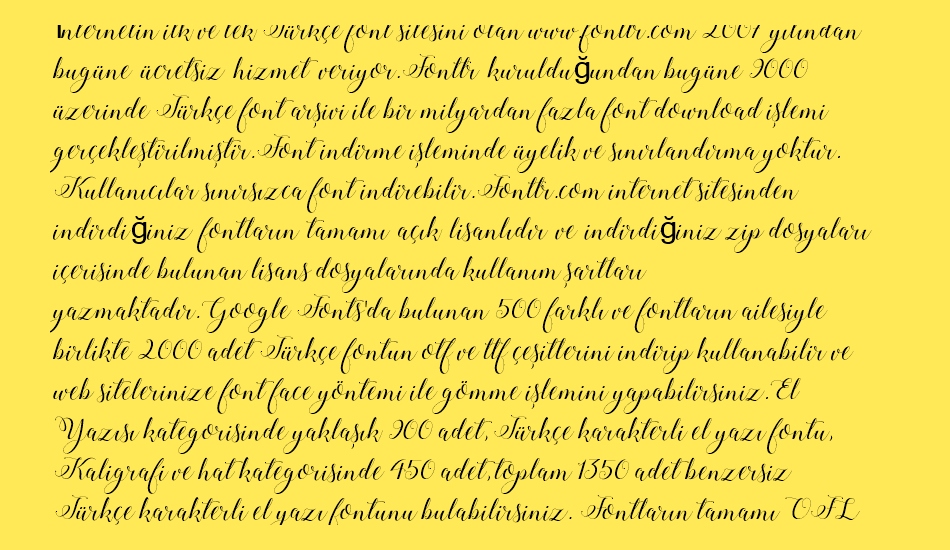 İnternetin ilk ve tek Türkçe font sitesini olan www.fonttr.com 2001 yılından
bugüne ücretsiz hizmet veriyor.Fonttr kurulduğundan bugüne 9000
üzerinde Türkçe font arşivi ile bir milyardan fazla font download işlemi
gerçekleştirilmiştir.Font indirme işleminde üyelik ve sınırlandırma yoktur.
Kullanıcılar sınırsızca font indirebilir.Fonttr.com internet sitesinden
indirdiğiniz fontların tamamı açık lisanlıdır ve indirdiğiniz zip dosyaları
içerisinde bulunan lisans dosyalarında kullanım şartları
yazmaktadır.Google Fonts'da bulunan 500 farklı ve fontların ailesiyle
birlikte 2000 adet Türkçe fontun otf ve ttf çeşitlerini indirip kullanabilir ve
web sitelerinize font face yöntemi ile gömme işlemini yapabilirsiniz.El
Yazısı kategorisinde yaklaşık 900 adet, Türkçe karakterli el yazı fontu,
Kaligrafi ve hat kategorisinde 450 adet,toplam 1350 adet benzersiz
Türkçe karakterli el yazı fontunu bulabilirsiniz. Fontların tamamı OFL